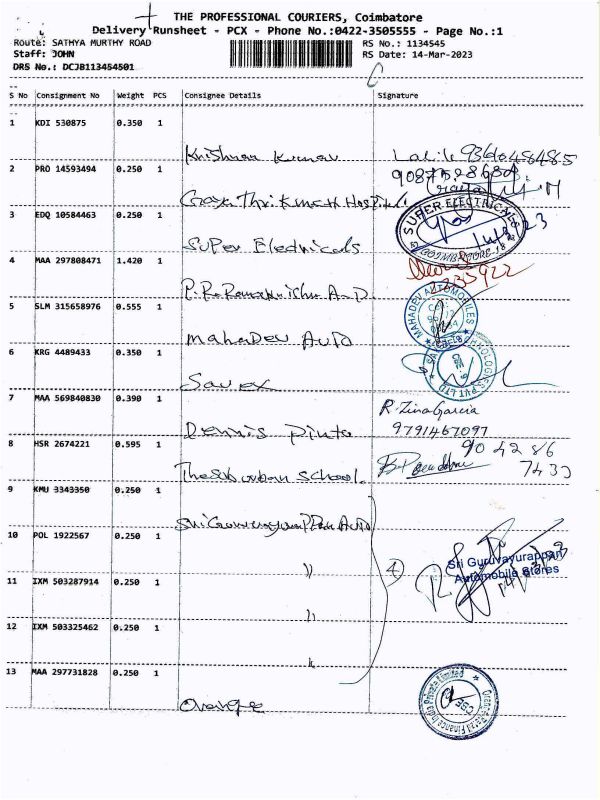 THE PROFESSIONAL COURIERS, Coimbatore
Delivery Runsheet - PCX - Phone No.:0422-3505555 - Page No.:1
Route: SATHYA MURTHY ROAD RS No.: 1134545
Staff: JOHN RS Date: 14-Mar-2023
DRS No.: DCJB113454501
S No Consignment No Weight PCS Consignee Details Signature
1 KDI 530875 0.350 1
Krishnan Kumar
2 PRO 14593494 0.250 1
3 EDQ 10584463 0.250 1
Super Electricals SUPER ELECTRICALS COIMBATORE-18
4 MAA 297808471 1.420 1
5 SLM 315658976 0.555 1
MahaDev Auto MAHADEV AUTOMOBILES
6 KRG 4489433 0.350 1
Savex
7 MAA 569840830 0.390 1 R. Zina Garcia
Dennis Pinto 9791467097
8 HSR 2674221 0.595 1
The Suburban School
9 KMU 3343350 0.250 1
10 POL 1922567 0.250 1
Sri Guruvayurappan
Automobile Stores
11 IXM 503287914 0.250 1
12 IXM 503325462 0.250 1
13 MAA 297731828 0.250 1